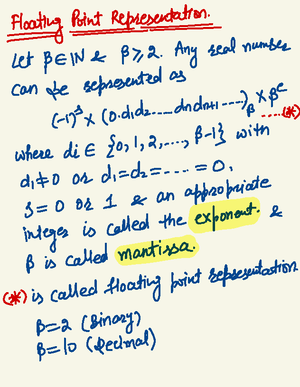 Floating Point Representation.
Let β ∈ ℕ & β ≥ 2. Any real number
can be represented as
(-1)^s × (0.d₁d₂....dₙdₙ₊₁----)_β × β^e .....(*)
where di ∈ {0, 1, 2, ...., β-1} with
d₁ ≠ 0 or d₁ = d₂ = ---- = 0,
s = 0 or 1 & an appropriate
integer is called the exponent. &
β is called mantissa.
(*) is called floating point representation
β = 2 (Binary)
β = 10 (Decimal)